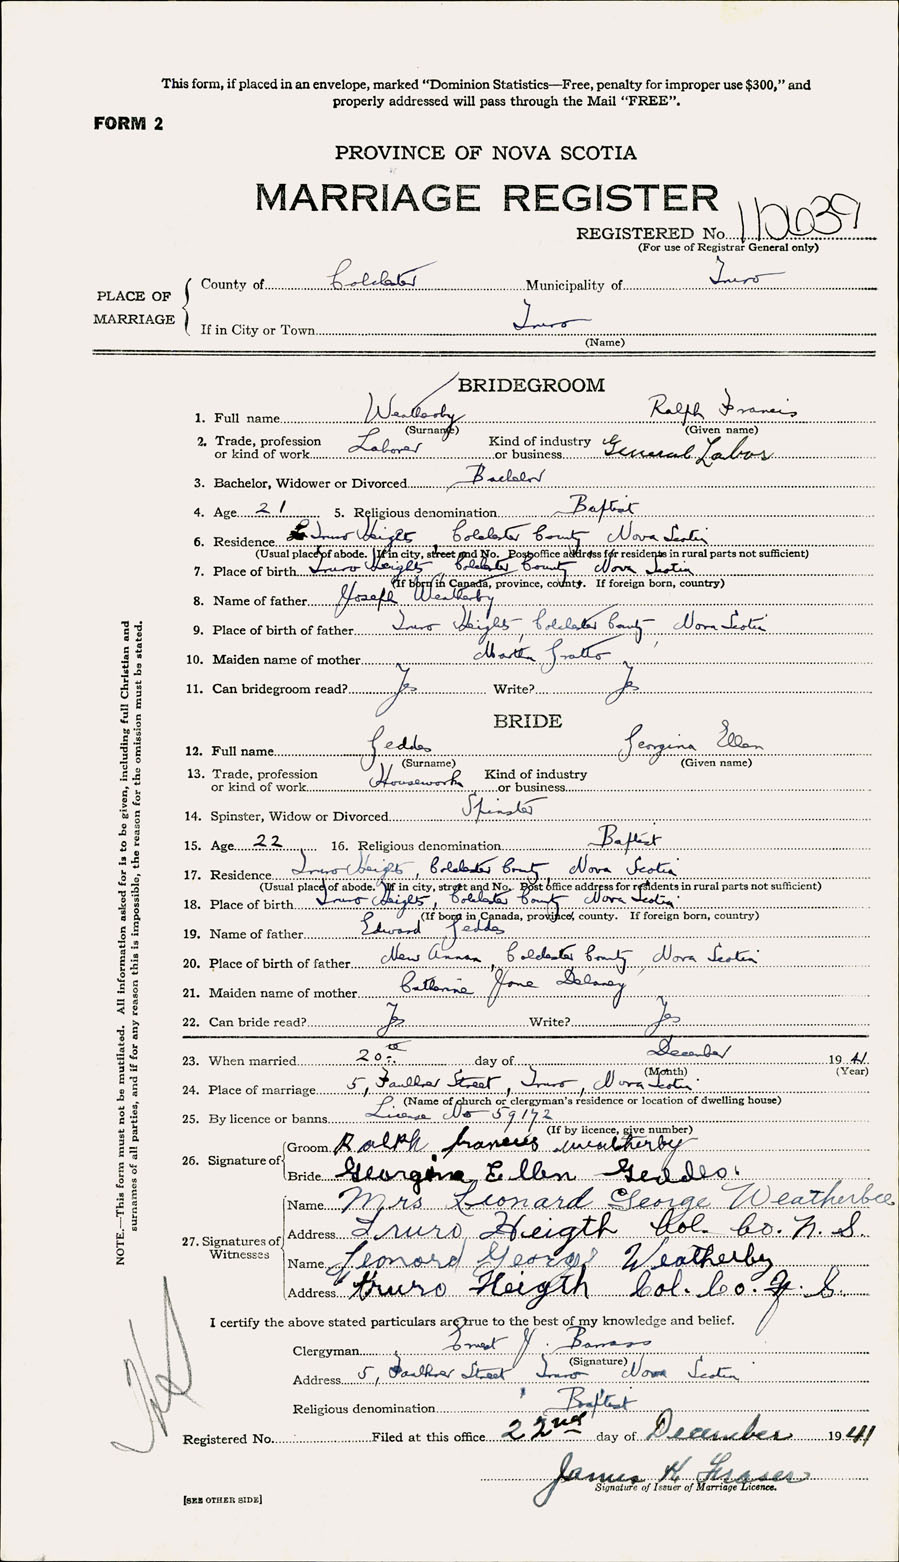 This form, if placed in an envelope, marked “Dominion Statistics—Free, penalty for improper use $300,” and
properly addressed will pass through the Mail “FREE”.
FORM 2
PROVINCE OF NOVA SCOTIA
MARRIAGE REGISTER
REGISTERED No. 110639
(For use of Registrar General only)
PLACE OF MARRIAGE
County of Colchester Municipality of Truro
If in City or Town Truro
(Name)
BRIDEGROOM
1. Full name Weatherby Ralph Francis
(Surname) (Given name)
2. Trade, profession or kind of work Laborer Kind of industry or business General Labor
3. Bachelor, Widower or Divorced Bachelor
4. Age 21 5. Religious denomination Baptist
6. Residence Truro Heights Colchester County Nova Scotia
(Usual place of abode. If in city, street and No. Post office address for residents in rural parts not sufficient)
7. Place of birth Truro Heights Colchester County Nova Scotia
(If born in Canada, province, county. If foreign born, country)
8. Name of father Joseph Weatherby
9. Place of birth of father Truro Heights, Colchester County, Nova Scotia
10. Maiden name of mother Martha Gratto
11. Can bridegroom read? Yes Write? Yes
BRIDE
12. Full name Geddes Georgina Ellen
(Surname) (Given name)
13. Trade, profession or kind of work Housework Kind of industry or business
14. Spinster, Widow or Divorced Spinster
15. Age 22 16. Religious denomination Baptist
17. Residence Truro Heights, Colchester County, Nova Scotia
(Usual place of abode. If in city, street and No. Post office address for residents in rural parts not sufficient)
18. Place of birth Truro Heights, Colchester County Nova Scotia
(If born in Canada, province, county. If foreign born, country)
19. Name of father Edward Geddes
20. Place of birth of father New Annan, Colchester County, Nova Scotia
21. Maiden name of mother Catherine Jane Delaney
22. Can bride read? Yes Write? Yes
23. When married 20th day of December 1941
(Month) (Year)
24. Place of marriage 5, Faulkner Street, Truro, Nova Scotia
(Name of church or clergyman's residence or location of dwelling house)
25. By licence or banns License No 59172
(If by licence, give number)
26. Signature of
Groom Ralph francis weatherby
Bride Georgina Ellen Geddes.
27. Signatures of Witnesses
Name Mrs Leonard George Weatherbee
Address Truro Heigth Col. Co. N. S.
Name Leonard George Weatherby
Address truro Heigth Col. Co. N. S.
I certify the above stated particulars are true to the best of my knowledge and belief.
Clergyman Ernest J. Barrass
(Signature)
Address 5, Faulkner Street Truro Nova Scotia
Religious denomination Baptist
Registered No. Filed at this office 22nd day of December 1941
James H Fraser
Signature of Issuer of Marriage Licence.
[SEE OTHER SIDE]
NOTE.—This form must not be mutilated. All information asked for is to be given, including full Christian and
surnames of all parties, and if for any reason this is impossible, the reason for the omission must be stated.